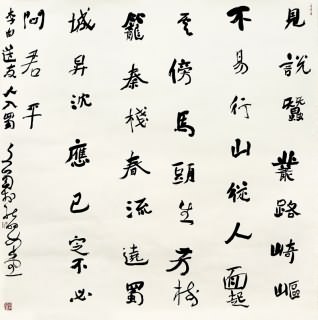 見說蠶叢路崎嶇
不易行山從人面起
雲傍馬頭生芳樹
籠秦棧春流遶蜀
城昇沈應已定不必
問君平
李白送友人入蜀